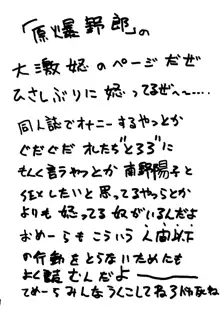 「原爆野郎」の
大激怒のページだぜ
ひさしぶりに怒ってるぜ〜〜....
同人誌でオナニーするやっとか
ぐだぐだ れたち"とろろ"に
もんく言うやっとか 南野陽子と
SEXしたいと思ってるやつらとか
よりも怒ってる奴がいるんだよ
おめーらもこういう人間以下
の行動をとらないためにも
よく読むんだよ
てめーらみんなうんこしてねろ